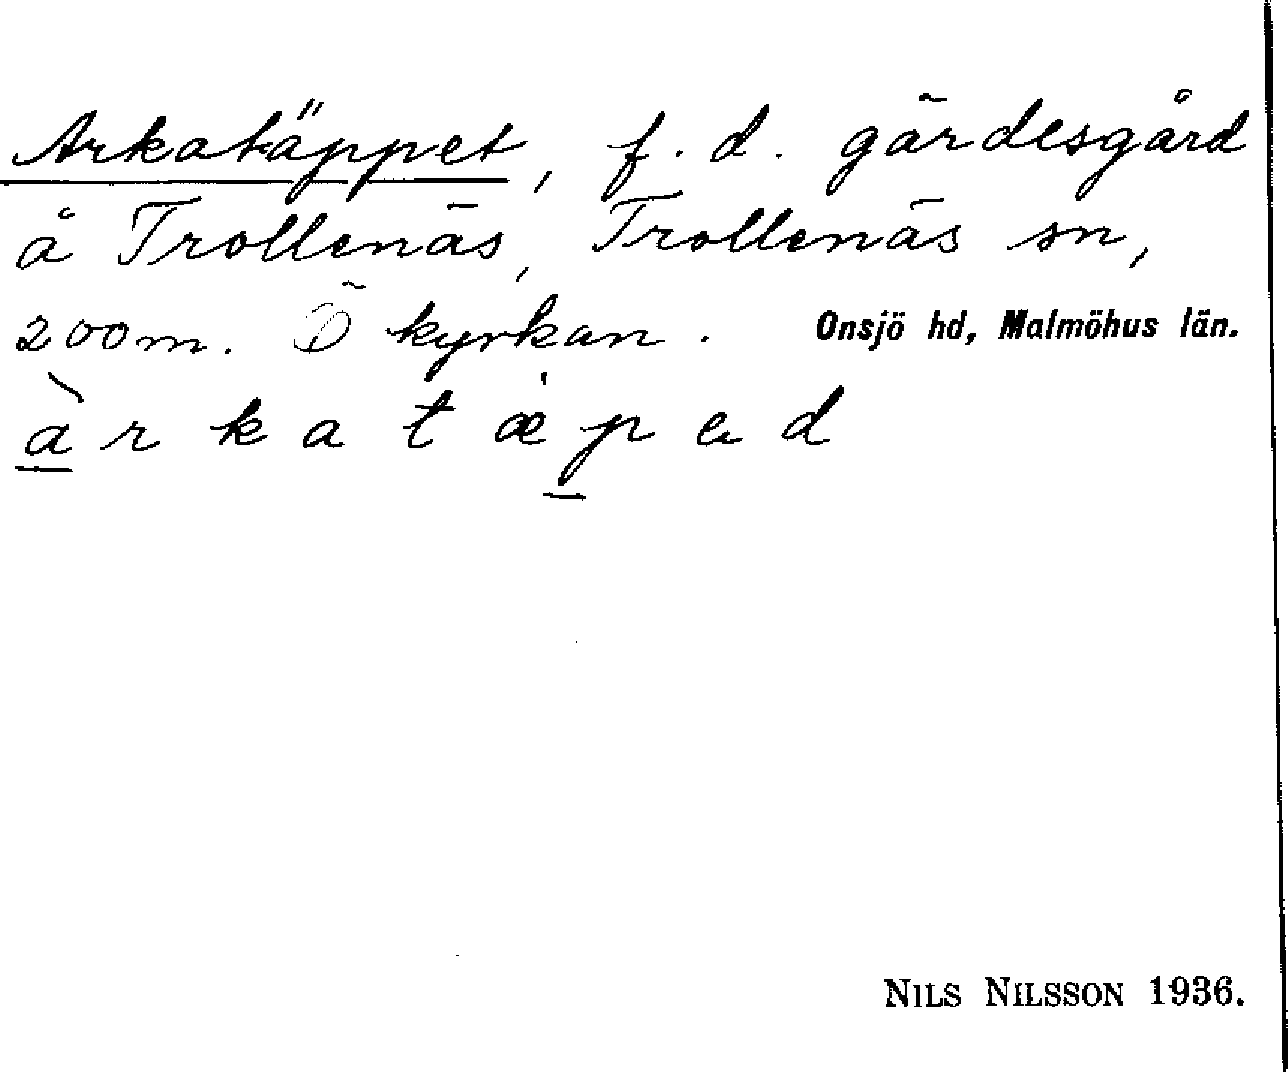 Arkatäppet, f. d. gärdesgård
å Trollenäs, Trollenäs sn,
200m. Ö kyrkan. Onsjö hd, Malmöhus län.
àrkatæped
NILS NILSSON 1936.